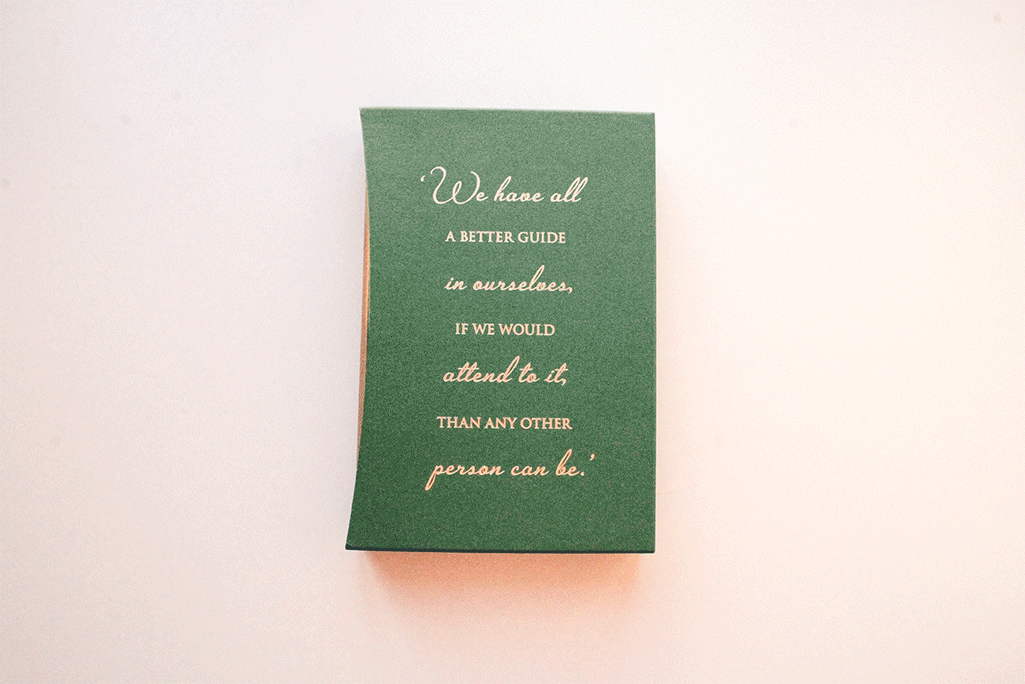 ‘We have all
A BETTER GUIDE
in ourselves,
IF WE WOULD
attend to it,
THAN ANY OTHER
person can be.’